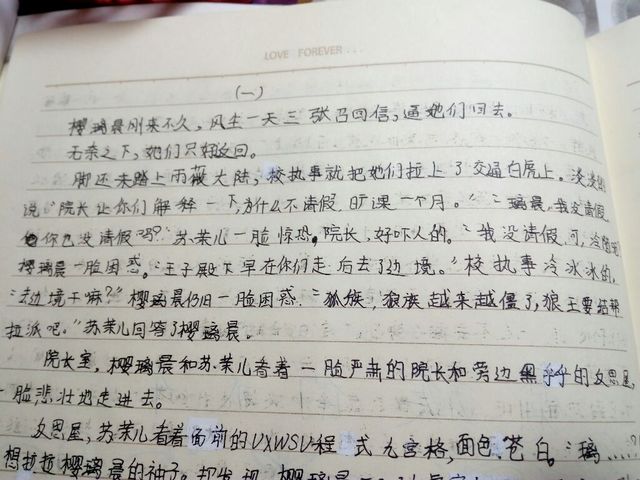 LOVE FOREVER...
(一)
樱璃晨刚来不久，风尘一天三张召回信，逼她们回去。
无奈之下，她们只好返回。
脚还未踏上雨薇大陆，校执事就把她们拉上了交通白虎上。淡淡的
说"院长让你们解释一下，为什么不请假，旷课一个月。""璃晨，我没请假，
你也没请假吗？"苏茉儿一脸惊恐。院长，好吓人的。"我没请假
樱璃晨一脸困惑。"王子殿下早在你们走后去了边境。"校执事冷冰冰的，
"去边境干嘛？"樱璃晨仍旧一脸困惑。"狐族，狼族越来越僵了，狼王要结帮
拉派吧。"苏茉儿回答了樱璃晨。
院长室，樱璃晨和苏茉儿看着一脸严肃的院长和旁边黑乎乎的文思屋，
脸悲壮地走进去。
文思屋，苏茉儿看着面前的VXWSV程式九宫格，面色苍白。"璃……
想拉拉樱璃晨的袖子，却发现，樱璃晨